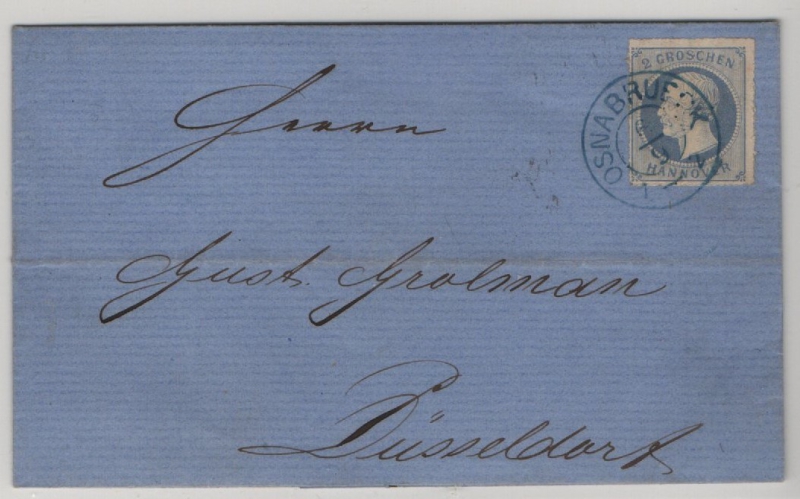 2 GROSCHEN
HANNOVER
OSNABRUECK
Herrn
Gust. Grolman
Düsseldorf